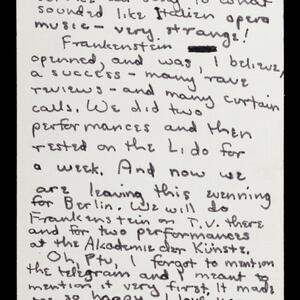 to what
sounded like Italien opera
music - very strange!
Frankenstein
openned, and was, I believe,
a success - many rave
reviews - and many curtain
calls. We did two
performances and then
rested on the Lido for
a week. And now we
are leaving this evenning
for Berlin. We will do
Frankenstein on T.V. there
and for two performances
at the Akademie der Künste.
Oh, Ptu, I forgot to mention
the telegram and I meant to
mention it very first. It made
me so happy. I love you